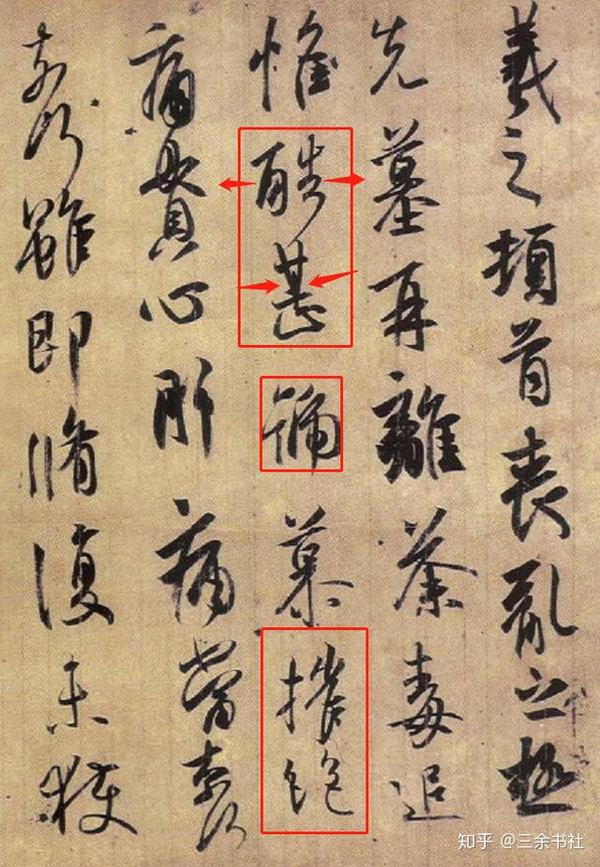 羲之頓首喪亂之極
先墓再離荼毒追
惟酷甚號慕摧絕
痛貫心肝痛當奈何
奈何雖即脩復未獲
知乎 @三余书社